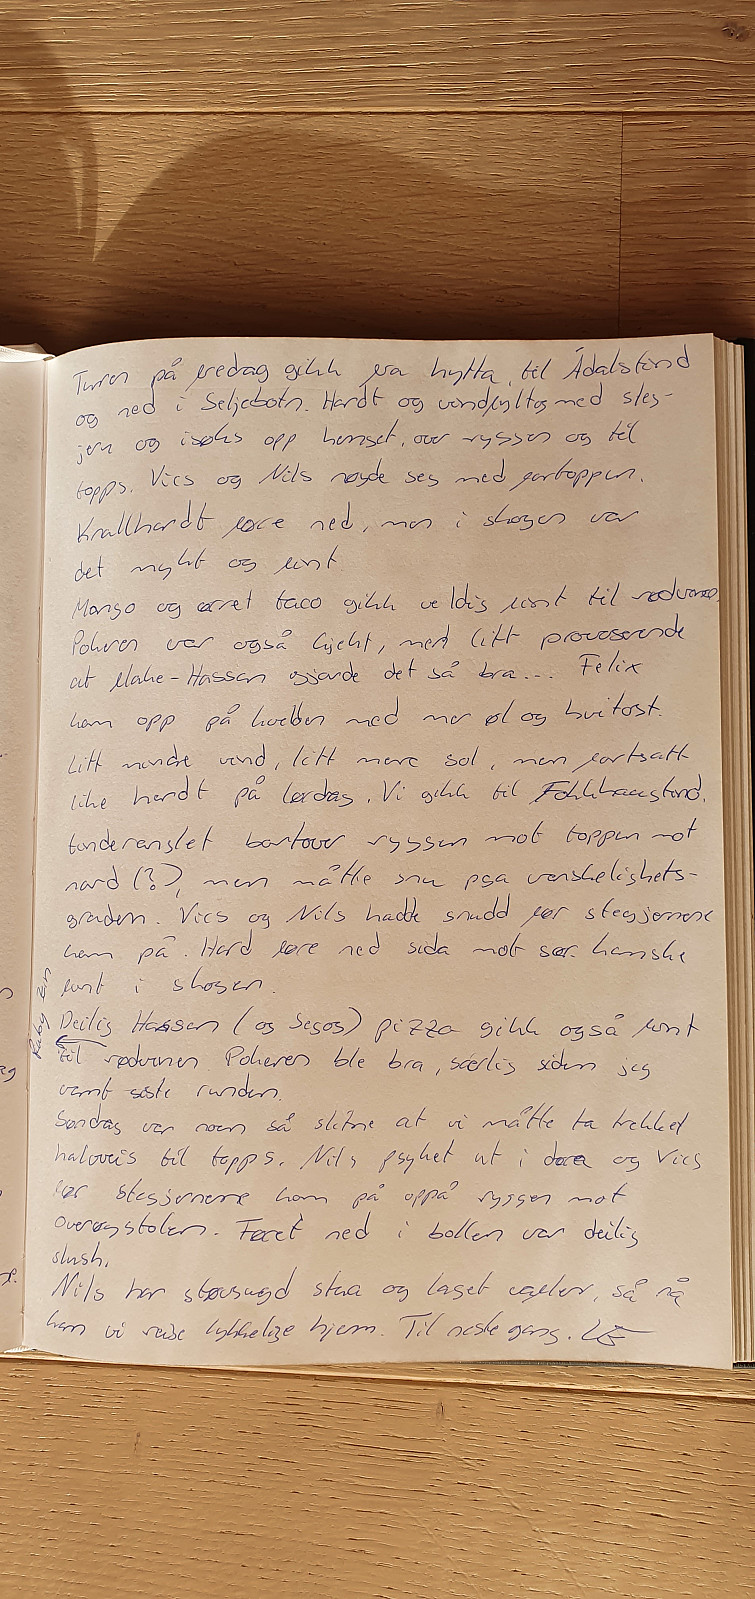 Turen på fredag gikk fra hytta, til Ådalstind
og ned i Seljebotn. Hardt og vindfylt og med steg-
jern og isøks opp henget, over ryggen og til
topps. Vics og Nils nøyde seg med fortoppen.
Knallhardt føre ned, men i skogen var
det mykt og fint
Mango og ørret taco gikk veldig fint til rødvinen.
Pokeren var også kjekt, med litt provoserende
at Flake-Hassan gjorde det så bra... Felix
kom opp på kvelden med mer øl og hvitost.
Litt mindre vind, litt mere sol, men fortsatt
like hardt på lørdag. Vi gikk til
bortover ryggen mot toppen mot
nord (?), men måtte snu pga vanskelighets-
graden. Vics og Nils hadde snudd før stegjernene
kom på. Hard føre ned sida mot sør. kanskje
fint i skogen.
Deilig Hassan (og Segos) pizza gikk også fint
til rødvinen Pokeren ble bra, særlig siden jeg
vant siste runden.
Søndag var noen så slitne at vi måtte ta trekket
halvveis til topps. Nils psyket ut i døra og Vics
før stegjernene kom på oppå ryggen mot
Overøystolen. Føret ned i bollen var deilig
slush.
Nils har støvsugd stua og laget vafler, så nå
kan vi reise lykkelige hjem. Til neste gang.